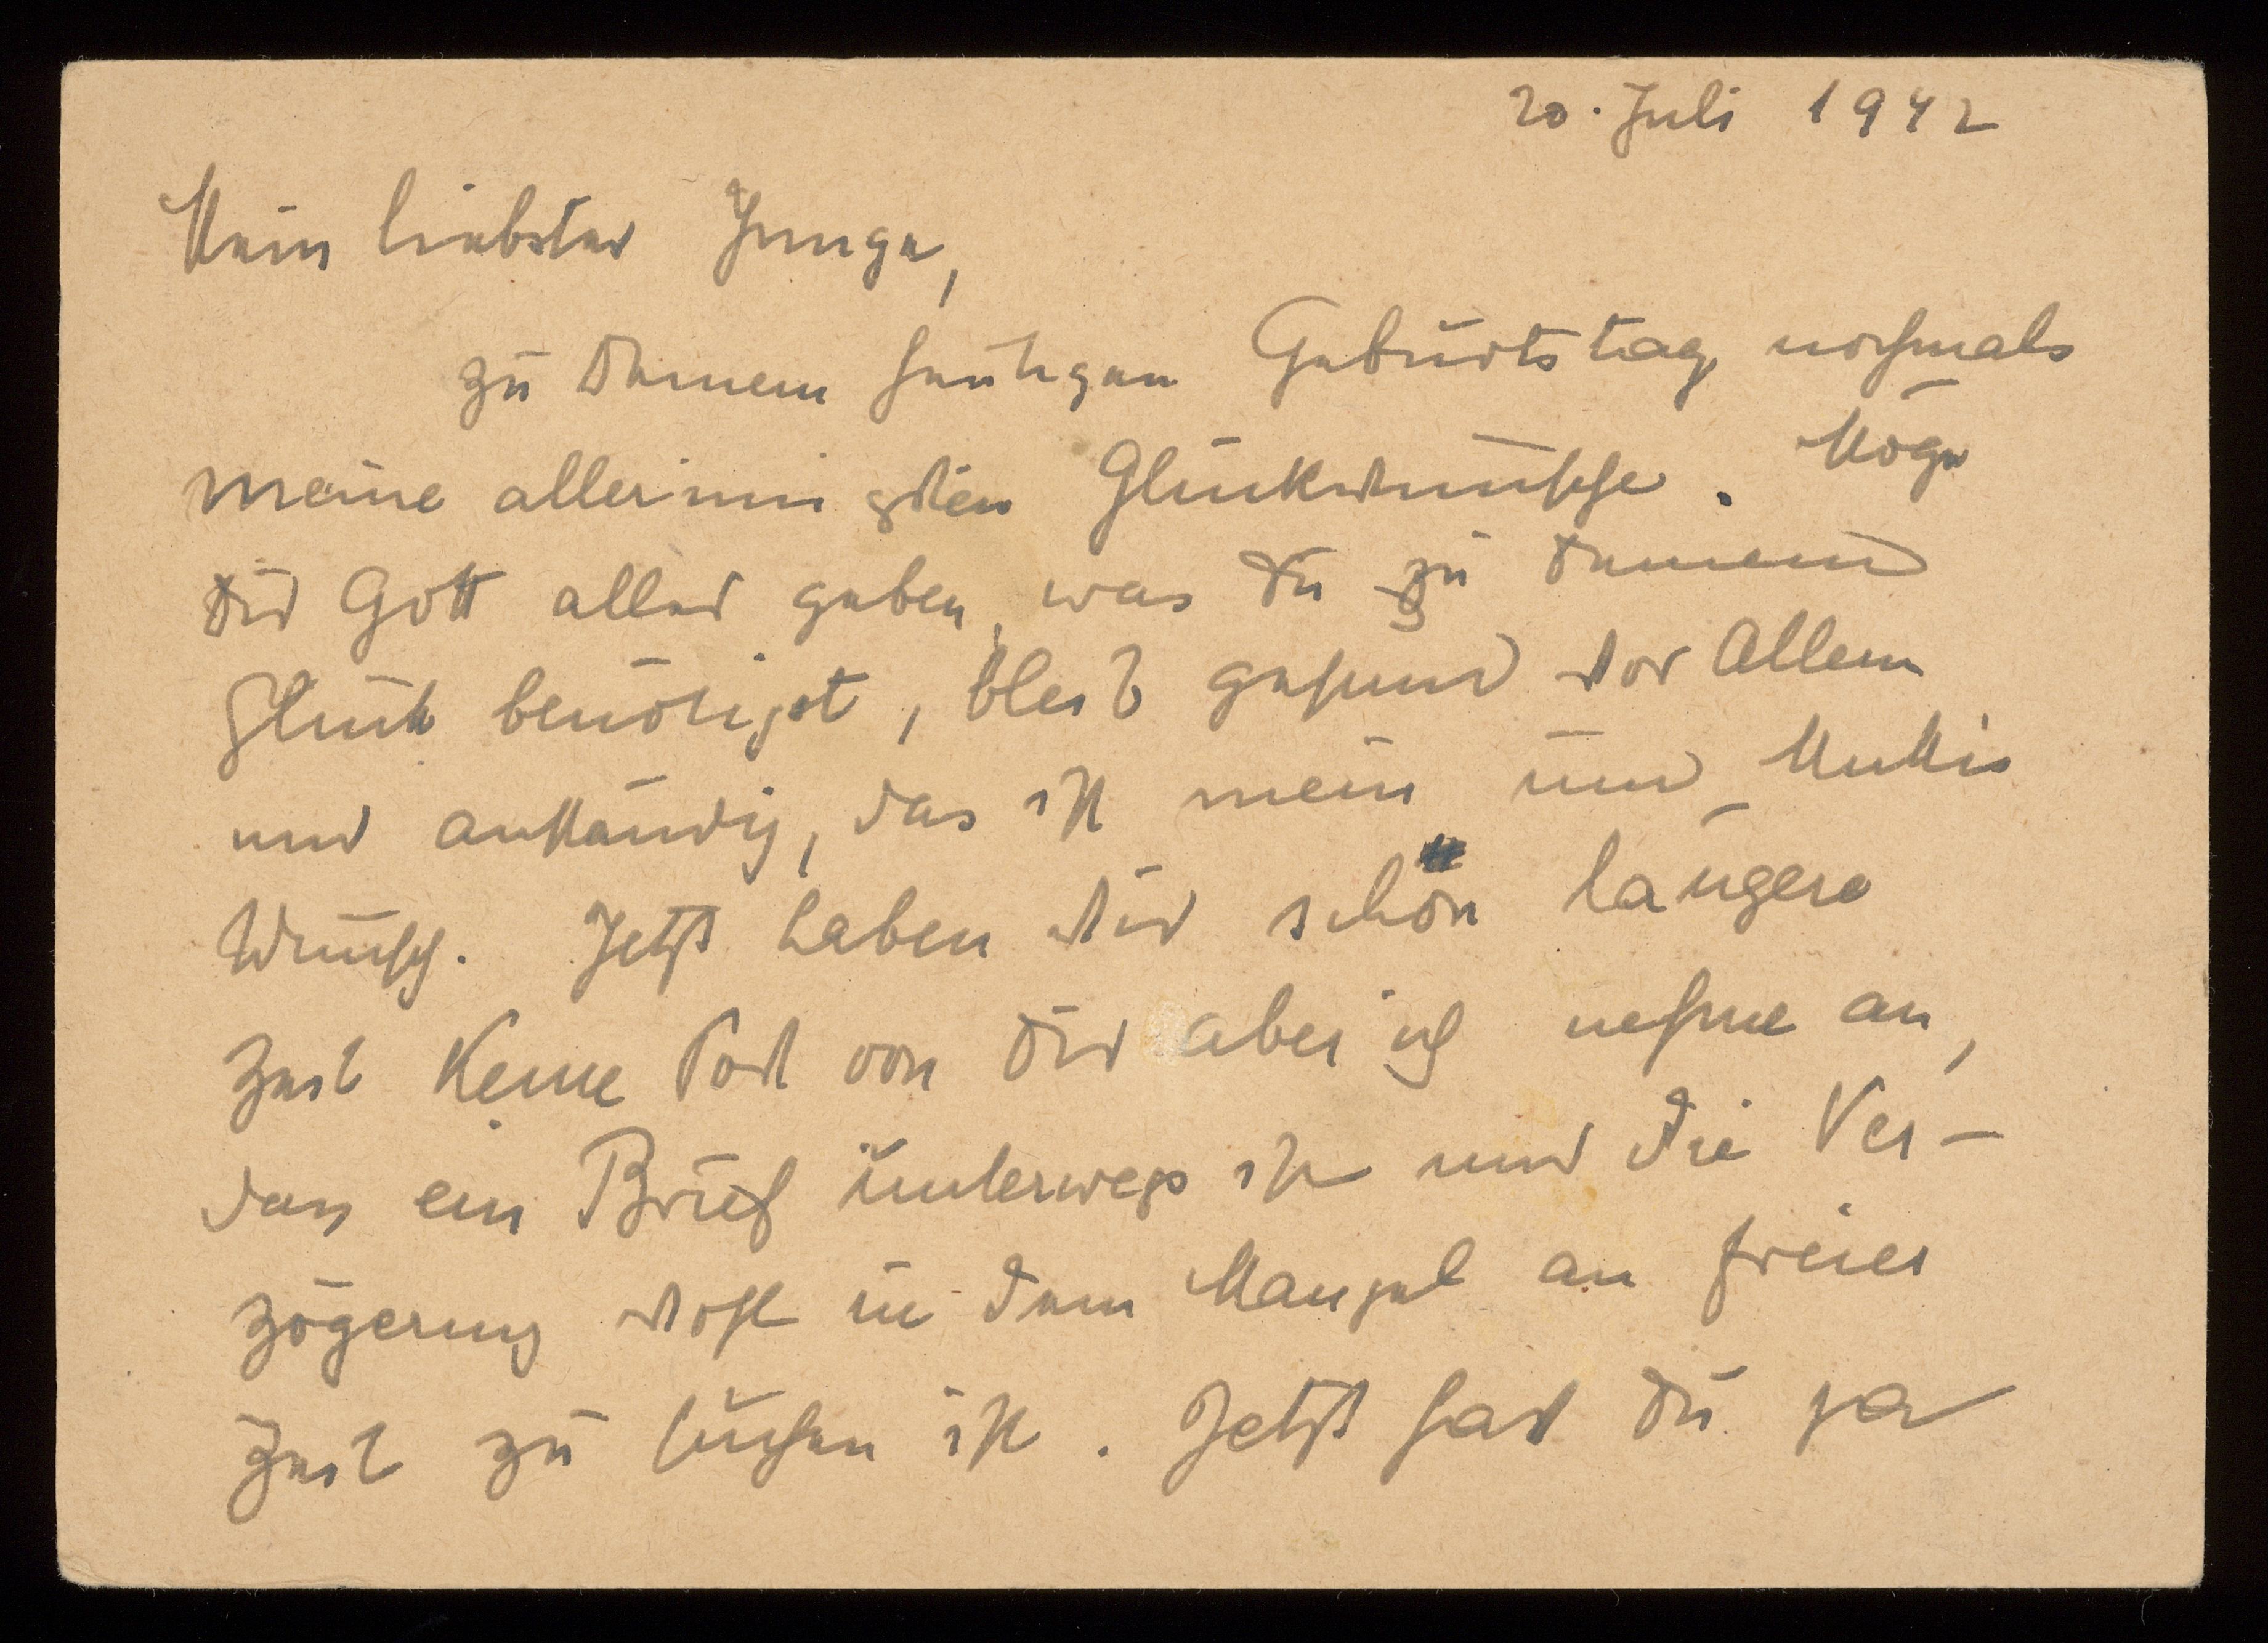 20. Juli 1942
Mein liebster Junge,
zu Deinem heutigen Geburtstag nochmals
meine allerinnigsten Glückwünsche. Möge
Dir Gott alles geben, was Du zu Deinem
Glück benötigst, bleib gesund vor Allem
und anständig, das ist mein und Muttis
Wunsch. Jetzt haben wir schon längere
Zeit keine Post von Dir aber ich nehme an,
dass ein Brief unterwegs ist und die Ver-
zögerung wohl in dem Mangel an freier
Zeit zu suchen ist. Jetzt hast Du ja